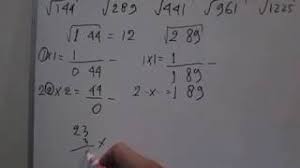 √144 √289 √441 √961 √1225
√1 44 = 12 √2 89
1×1= 1 – 1×1= 1 –
0 44 1 89
22×2 = 44 – 2 -×- = 1 89
0
23
×